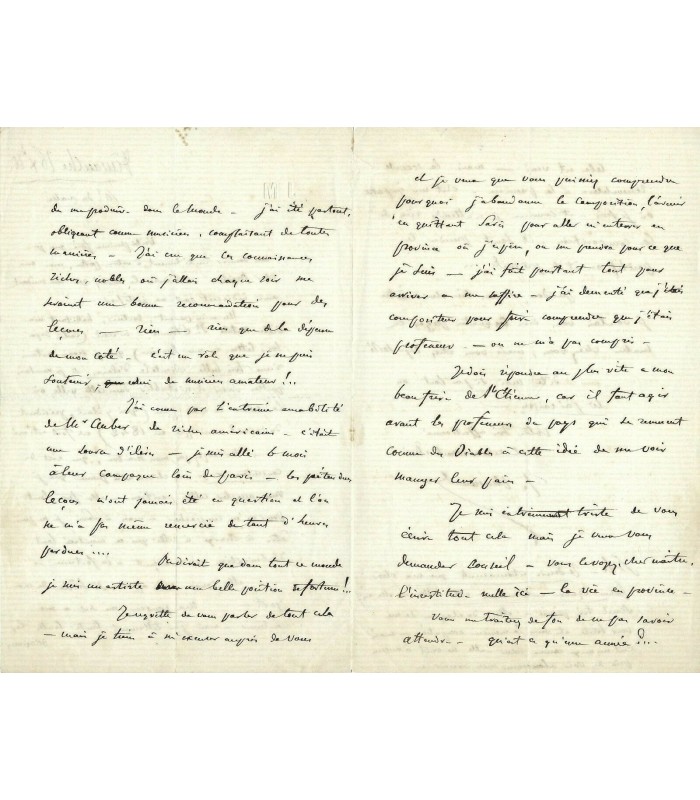 de me produire dans le monde — j'ai été partout,
obligeant comme musicien, complaisant de toutes
manières — J'ai cru que ces connaissances
riches, nobles où j'allais chaque soir me
seraient une bonne recommandation pour des
leçons — rien — rien que de la dépense
de mon côté. c'est un role que je ne puis
soutenir, de musicien amateur!..
J'ai connu par l'extrême amabilité
de Mr Auber de riches américains — c'était
une source d'élèves — je suis allé 6 mois
à leur campagne loin de paris — les prétendues
leçons n'ont jamais été en question et l'on
ne m'a pas même remercié de tant d'heures
perdues ....
On dirait que dans tout ce monde
je suis un artiste une belle position de fortune!..
Je regrette de vous parler de tout cela
— mais je tiens à m'excuser auprès de vous
et je veux que vous puissiez comprendre
pourquoi j'abandonne la composition, l'avenir
en quittant Paris pour aller m'enterrer en
province où j'espère, on me prendra pour ce que
je suis — j'ai fait pourtant tout pour
arriver a me suffire — j'ai démenti que j'étais
compositeur pour faire comprendre que j'étais
professeur — on ne m'a pas compris —
Je dois répondre au plus vite a mon
beau frère de St Etienne, car il faut agir
avant les professeurs du pays qui se remuent
comme des Diables à cette idée de me voir
manger leur pain —
Je suis triste de vous
écrire tout cela mais je veux vous
demander conseil — vous le voyez, cher maître,
l'incertitude mille fois — la vie en province —
Vous me traitez de fou de ne pas savoir
attendre — qu'est ce qu'une année?...